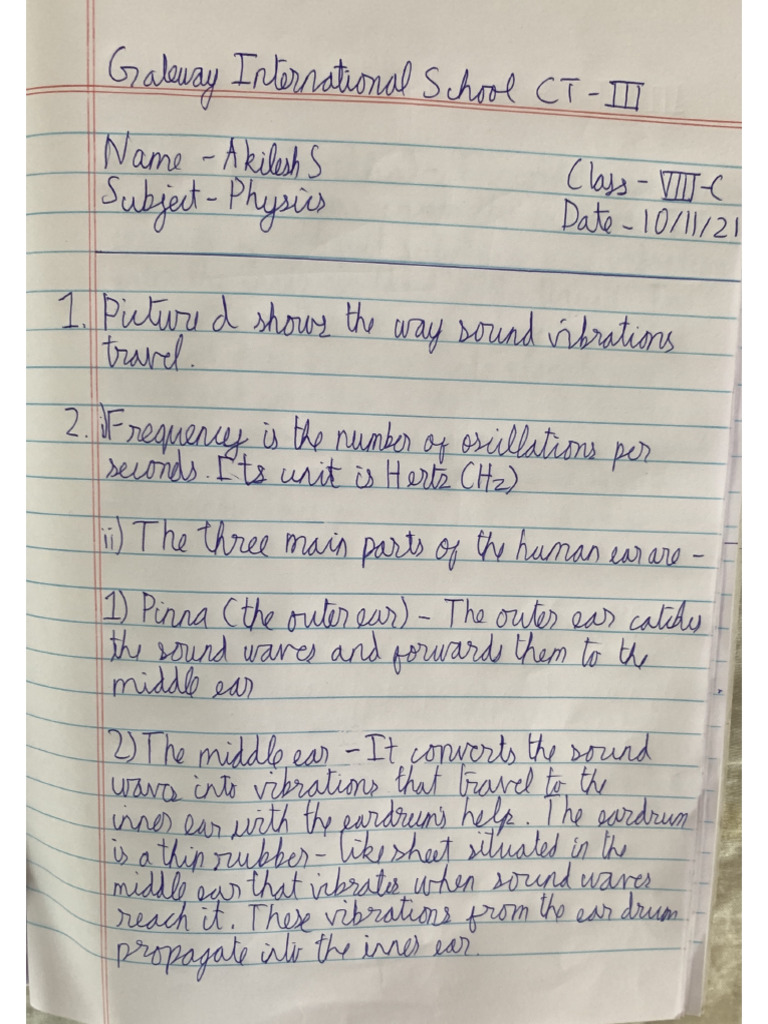 Gateway International School CT-III
Name - Akilesh S
Class - VIII-C
Subject - Physics
Date - 10/11/21
1. Picture d shows the way sound vibrations
travel.
2. i) Frequency is the number of oscillations per
seconds. Its unit is Hertz (Hz)
ii) The three main parts of the human ear are -
1) Pinna (the outer ear) - The outer ear catches
the sound waves and forwards them to the
middle ear
2) The middle ear - It converts the sound
waves into vibrations that travel to the
inner ear with the eardrum's help. The eardrum
is a thin rubber-like sheet situated in the
middle ear that vibrates when sound waves
reach it. These vibrations from the ear drum
propagate into the inner ear.